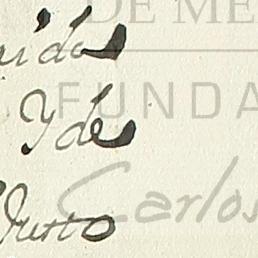 DE ME
FUNDA
Y de
Carlos
Justo